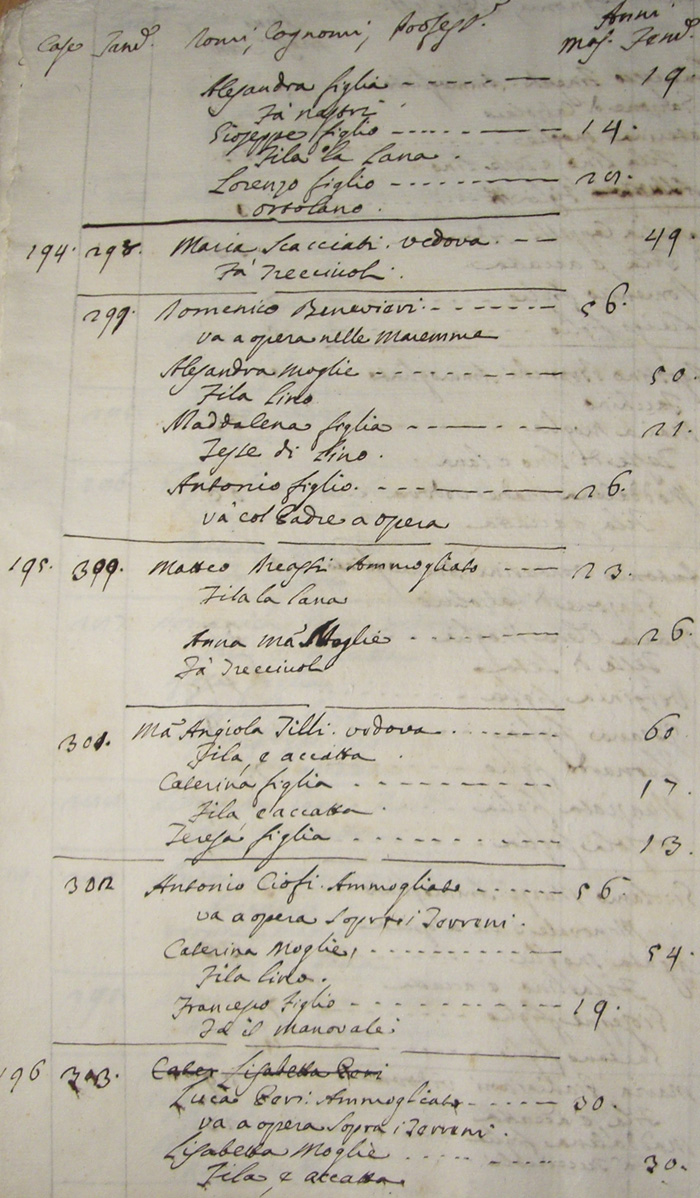 Anni
Case Famd. Nomi, Cognomi, Profess.i Mas. Femd.
Alesandra figlia 19.
Fà nastri
Gioseppe figlio 14.
Fila la Lana.
Lorenzo figlio 20.
ortolano.
194. 298. Maria Scacciati. vedova. 49.
Fà Treccivoli.
299. Domenico Benevieri. 56.
va a opera nelle Maremme
Alesandra Moglie 50.
Fila Lino
Maddalena figlia 21.
Tesse di Lino.
Antonio figlio. 26.
và col Padre a opera
195. 300. Matteo Ammogliato 23.
Fila la Lana
Anna Ma. Moglie 26.
Fà Treccivoli
301. Ma. Angiola Tilli. vedova 60
Fila, e accatta
Caterina figlia 17.
Fila, e accatta
Teresa figlia 13.
302 Antonio Ciofi. Ammogliato 56.
va a opera Sopra i Terreni.
Caterina Moglie, 54.
Fila Lino.
Francesco Figlio 19.
Fà il Manovale.
196 303. Cater Lisabetta Peri
Luca Peri. Ammogliato 30.
va a opera Sopra i Terreni.
Lisabetta Moglie 30.
Fila, e accatta